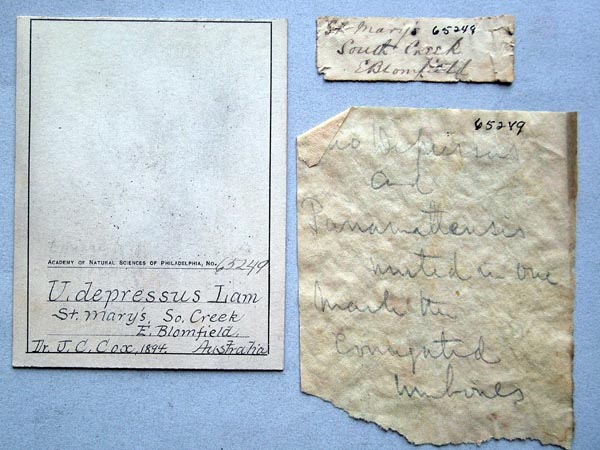 ACADEMY OF NATURAL SCIENCES OF PHILADELPHIA, NO. 65249
U. depressus Lam
St. Mary's, So. Creek
E. Blomfield,
Dr. J. C. Cox, 1894. Australia
St. Mary's 65249
South Creek
E Blomfield
65249
Depressus
and
united in one
Mark the
Corrugated
Umbones